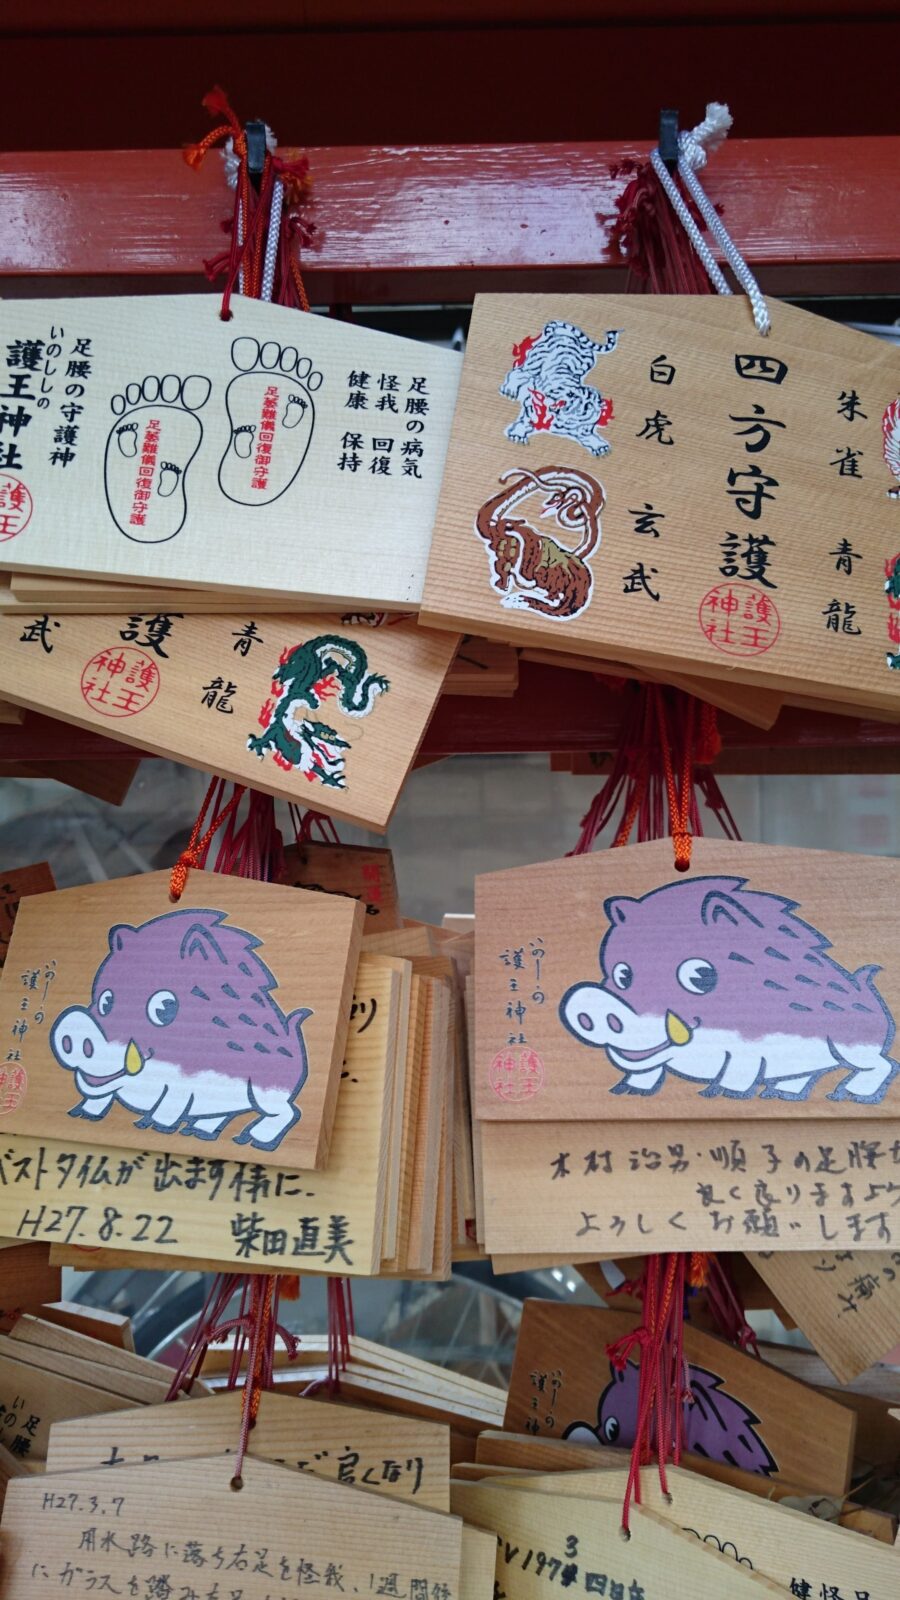 足腰の守護神
いのししの
護王神社
護王
足萎難儀回復御守護
足萎難儀回復御守護
足腰の病気
怪我 回復
健康 保持
四方守護
朱雀 青龍
白虎 玄武
護王神社
武
護
青龍
護王神社
いのししの
護王神社
護王神社
ベストタイムが出ます様に。
H27.8.22 柴田直美
いのししの
護王神社
護王神社
木村 治男・順子の足腰が
良く良りますよう
よろしくお願いします
護王神
良くなり
H27.3.7
用水路に落ち右足を怪我、1週間後
にガラスを踏み
足腰
いの
3
197
四日市
健怪足